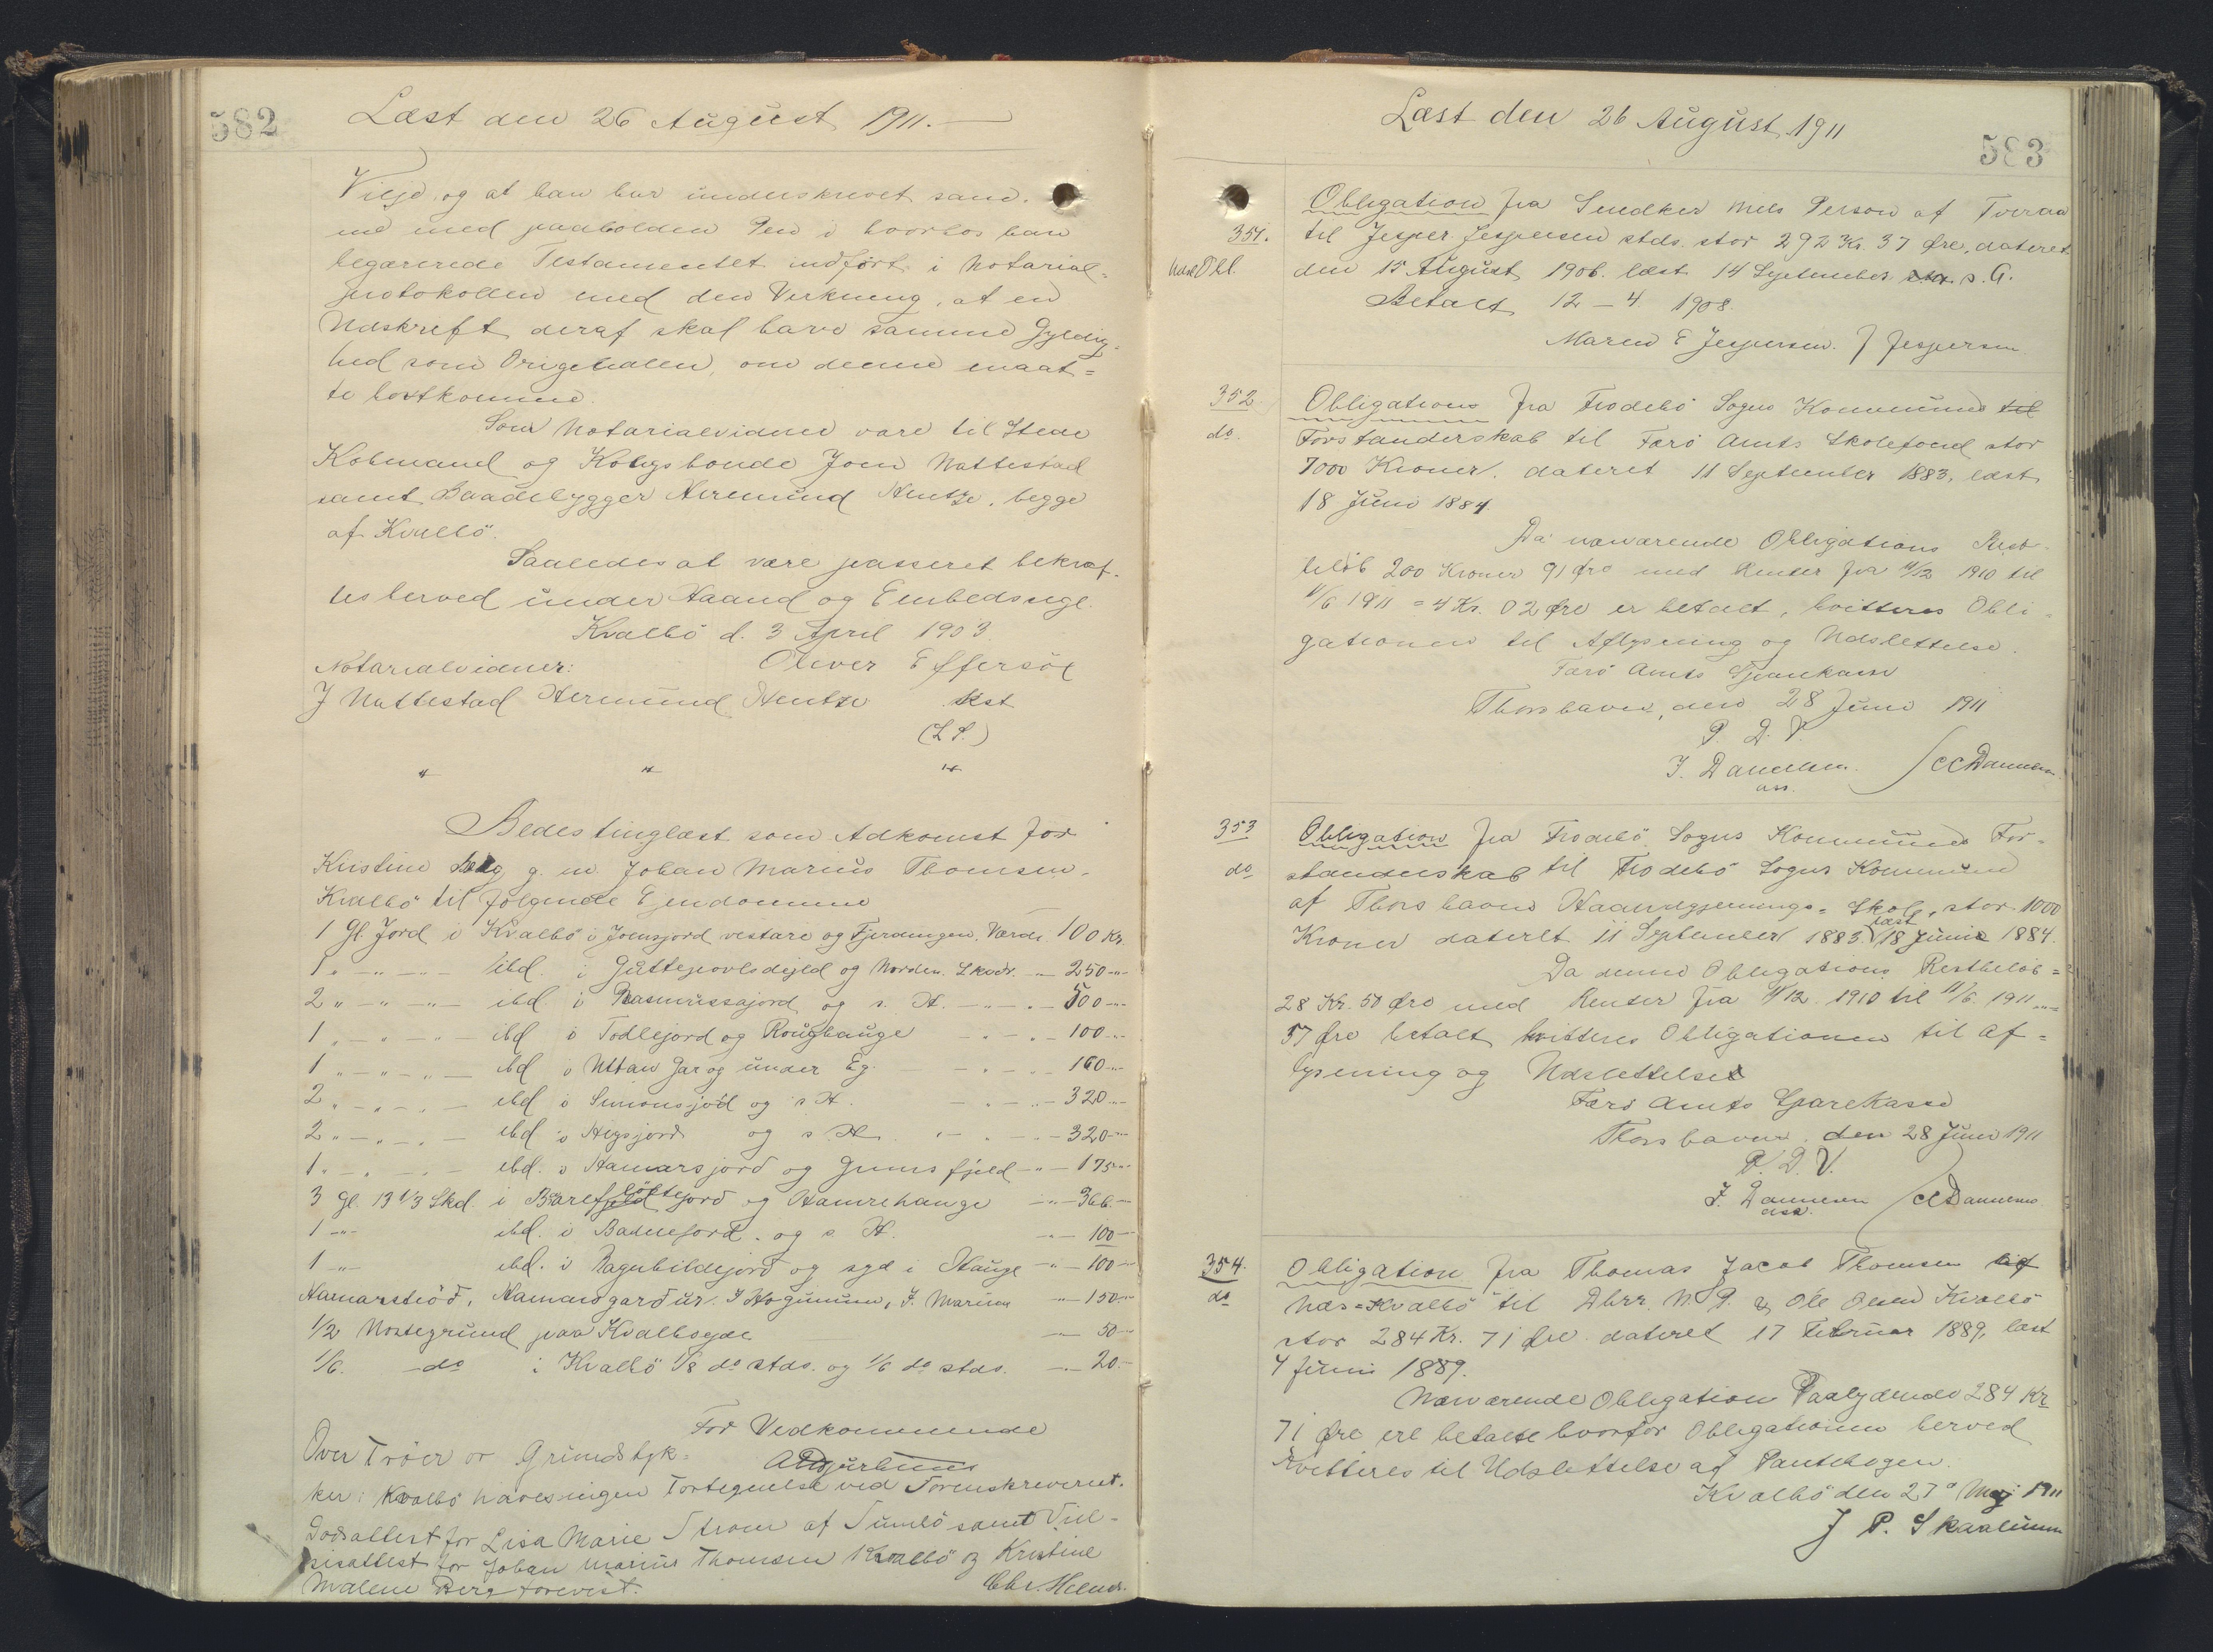 582
Læst den 26 August 1911.
Vilje, og at han har underskrevet sam-
me med paaholden Pen, hvorhos han
begærerede Testamentet indført i Notarial=
protokollen med den Virkning, at en
Udskrift deraf skal have samme Gyldig=
hed som Originalen, om denne maat=
te bortkomme.
Som Notarialvidner vare til Stede
Købmand og Kongsbonde Joen Nattestad
samt Baadebygger Hermund Hentze, begge
af Kvalbö.
Saaledes at være passeret bekræf-
tes herved under Haand og Embedssegl.
Kvalbö d. 3 April 1903.
Notarialvidner: Oliver Effersöe
J Nattestad Hermund Hentze kst
(L S.)
" " "
Bedes tinglæst som Adkomst for
Kristine Berg g. m. Johan Marius Thomsen,
Kvalbö til følgende Ejendomme
1 Gl. Jord i Kvalbö i Joensjord vestare og Fjerdingen. Værdi 100 Kr.
1 " - " - " - ibd. i Guttepovlsdejld og Norden. Skodr. - " - 250 - " -
2 " - " - " - ibd i Rasmussajord og s. H. - " - " - 500 - " -
1 " - " - " - ibd i Todlejord og Roughauge - " - " - 100 - " -
1 " - " - " - ibd i Uttan Gar og under Eg. - " - " - 160 - " -
2 " - " - " - ibd i Simonsjord og s H. - " - " - 320 - " -
2 " - " - " - ibd i Hegsjord og s H. " - " - 320 - " -
1 " - " - " - ibd. i Hamarsjord og Gunsfjeld - " - 175 - " -
3 Gl. 13 1/3 Skd. i Göttejord og Hamrehauge - " - 366 - " -
1 - " - ibd. i Badnejord. og s. H. - " - 100 -
1 - " - ibd. i Ragnhildejord og syd i Hauge - " - 100 - " -
Hamarströd, Hamarsgardur. J. Marius - " - 150 - " -
1/2 Nostegrund paa Kvalboejde - " - 50 - " -
1/6. - do i Kvalbö 1/8 do stds. og 1/6 do stds. - " - 20. -
For Vedkommende
Over Tröer or Grundstyk=
ker i Kvalbö haves ingen Fortegnelse ved Sorenskriveriet.
Dødsattest for Lisa Marie Strom af Sumbö samt Viel-
sesattest for Johan Marius Thomsen Kvalbö og Kristine
Malene Berg forevist. Chr.
Læst den 26 August 1911
583
351. Obligation fra Snedker Niels Person af Tveraa
til Jesper Jespersen stds. stor 292 Kr. 37 Øre, dateret
Udsl Obl. den 15 August 1906. læst 14 September s. A.
Betalt 12 - 4. 1908.
Maren E Jespersen. J Jespersen
352. Obligation fra Frodebö Sogns Kommunes til
do. Forstanderskab til Færö Amts Skolefond stor
7000 Kroner, dateret 11 September 1883, læst
18 Juni 1884
Da nærværende Obligations Rest-
beløb 200 Kroner 91 Øre med Renter fra 11/12 1910 til
11/6 1911 = 4 Kr. 02 Øre er betalt, kvitteres Obli=
gationen til Aflysning og Udslettelse.
Færö Amts Sparekasse
Thorshavn, den 28 Juni 1911
P. D. V.
J. Danielsen. / CC Danielsen
ass.
353 Obligation fra Frodebö Sogns Kommunes For-
do standerskab til Frodebö Sogns Kommune
af Thorshavns Haandgjernings=Skole, stor 1000
Kroner dateret 11 September 1883. læst 18 Juni 1884.
Da denne Obligations Restbeløb =
28 Kr. 50 Øre med Renter fra 11/12 1910 til 11/6. 1911 =
57 Øre betalt kvitteres Obligationen til Af=
lysning og Udslettelse
Færö Amts Sparekasse
Thorshavn, den 28 Juni 1911
P. D. V.
J. Danielsen / CC Danielsen
ass.
354. Obligation fra Thomas Jacob Thomsen af
do Næs=Kvalbö til Dhrr. N. P. & Ole Olsen Kvalbö
stor 284 Kr. 71 Øre dateret 17 Februar 1889, læst
4 Juni 1889.
Nærværende Obligation Paalydende 284 Kr
71 Øre ere betalte hvorfor Obligationen herved
Kvitteres til Udslettelse af Pantebogen.
Kvalbö den 27de Maj 1911
J P. Skaalum